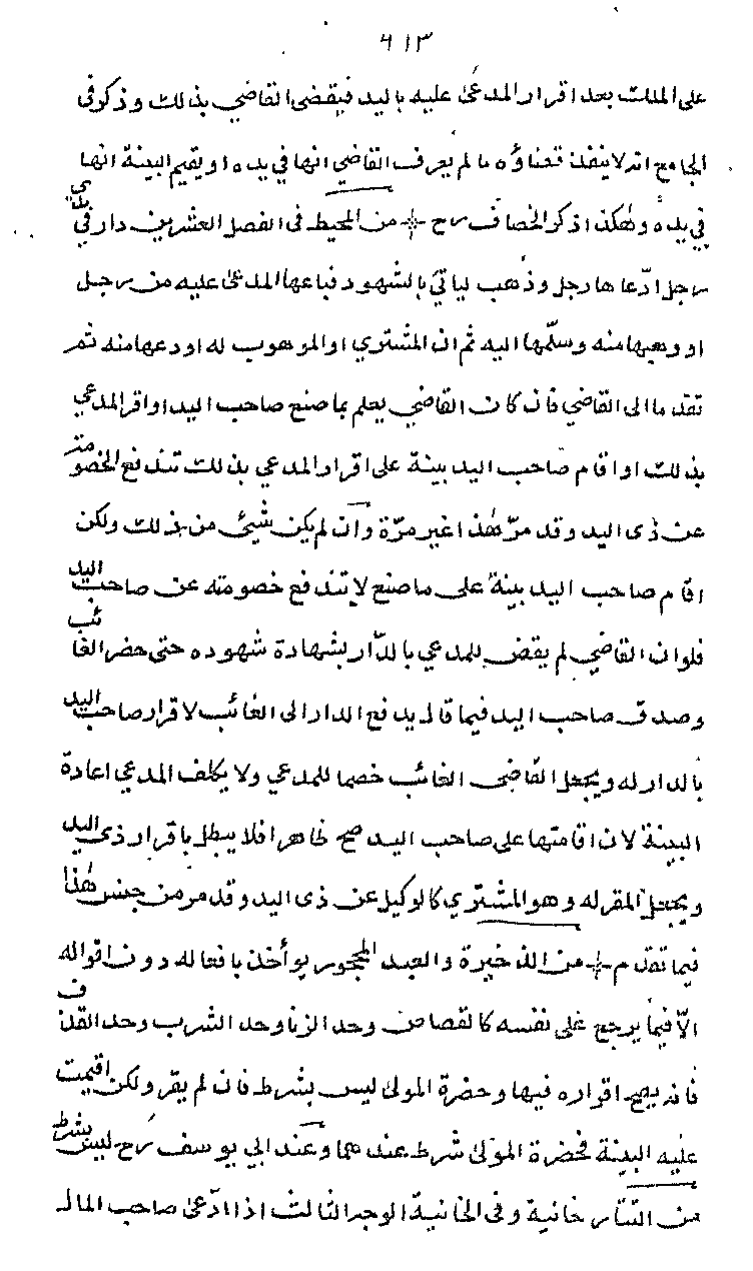 ٦١٣
على الملك بعد اقرار المدعىٰ عليه باليد فيقضى القاضي بذلك وذكر فى
الجامع انه لا ينفذ قضاؤه ما لم يعرف القاضي انها في يده او يقيم البينة انها
في يده وهٰكذا ذكر الخصاف رح من المحيط فى الفصل العشرين دار في يدي
رجل ادّعاها رجل وذهب لياتي بالشهود فباعها المدعىٰ عليه من رجل
او وهبها منه وسلّمها اليه ثم ان المشتري او الموهوب له اودعها منه ثم
تقدما الى القاضي فان كان القاضي يعلم بما صنع صاحب اليد او اقر المدعي
بذلك او اقام صاحب اليد بينة على اقرار المدعي بذلك تندفع الخصومة
عن ذى اليد وقد مرّ هٰذا غير مرّة وان لم يكن شيئ من ذلك ولكن
اقام صاحب اليد بينة على ما صنع لا تندفع خصومته عن صاحب اليد
فلو ان القاضي لم يقض للمدعي بالدّار بشهادة شهوده حتى حضر الغائب
وصدق صاحب اليد فيما قال يدفع الدار الى الغائب لاقرار صاحب اليد
بالدار له ويجعل القاضى الغائب خصما للمدعي ولا يكلف المدعي اعادة
البينة لان اقامتها على صاحب اليد صح ظاهرا فلا يبطل باقرار ذى اليد
ويجعل المقر له وهو المشتري كالوكيل عن ذى اليد وقد مر من جنس هٰذا
فيما تقدم من الذخيرة والعبد المحجور يوأخذ بافعاله دون اقواله
الّا فيما يرجع على نفسه كالقصاص وحد الزنا وحد الشرب وحد القذف
فانه يصح اقراره فيها وحضرة المولىٰ ليس بشرط فان لم يقر ولكن اقيمت
عليه البينة فحضرة المولىٰ شرط عندهما وعند ابي يوسف رح ليس بشرط
من التتارخانية وفى الخانية الوجه الثالث اذا ادّعىٰ صاحب المال